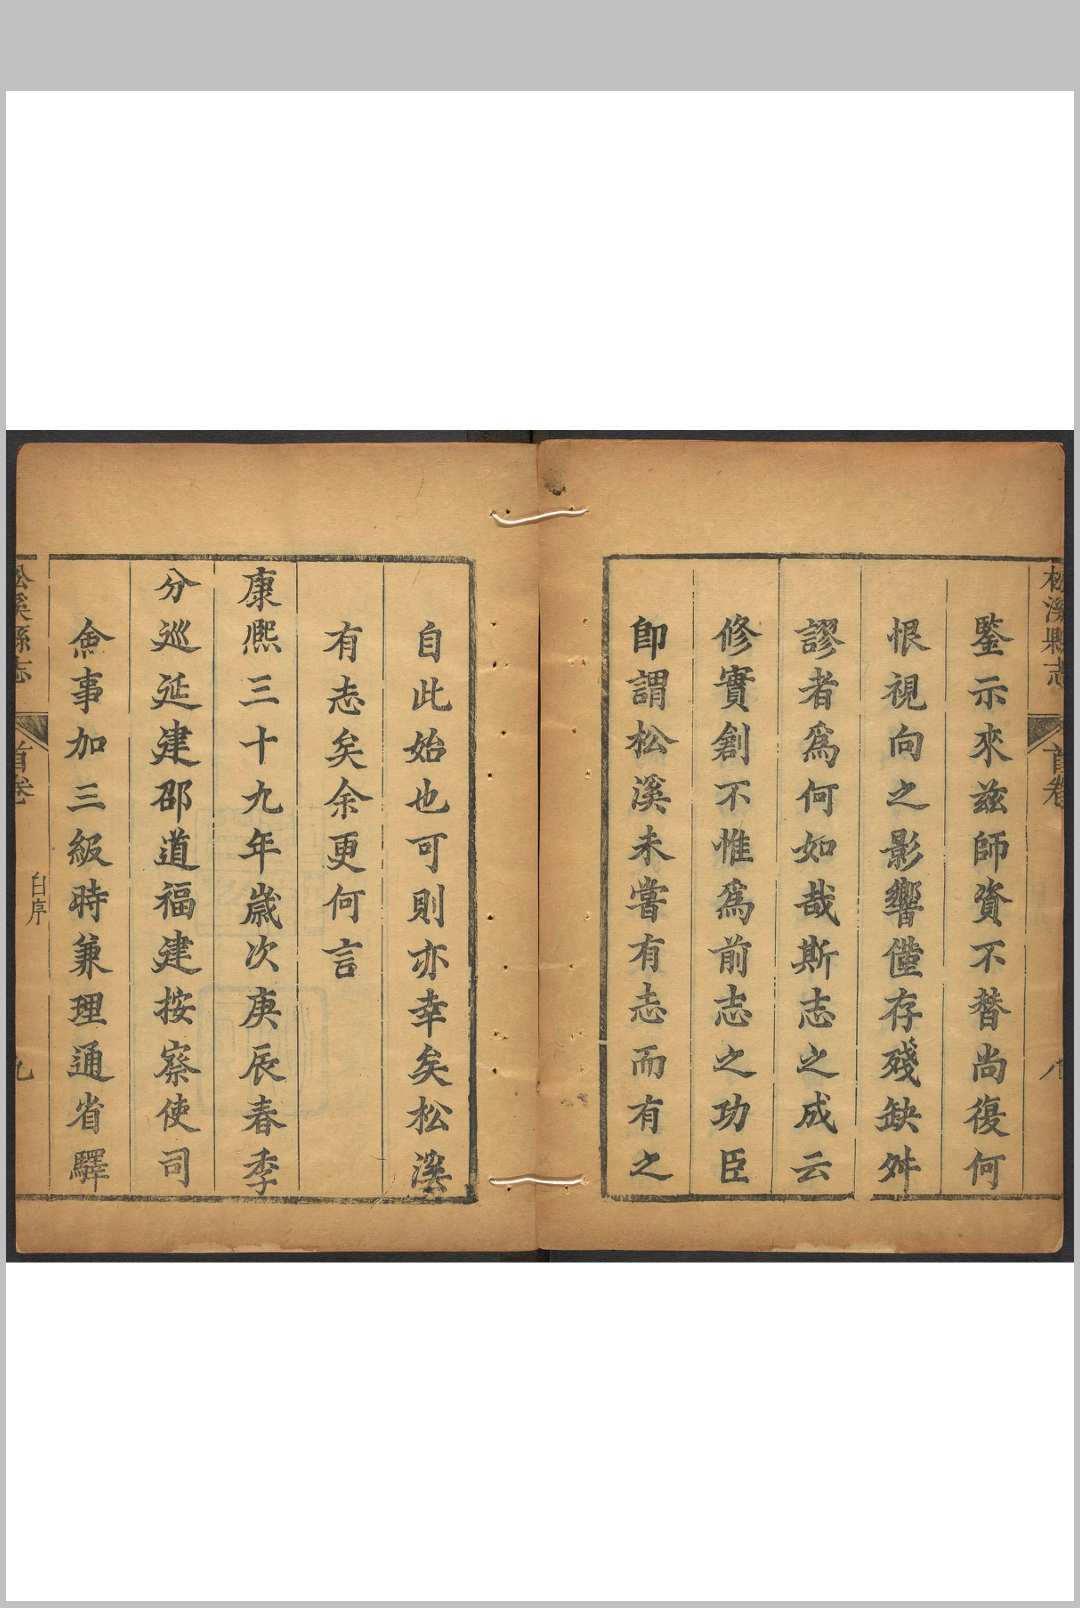 松溪縣志
首卷
八
鑒示來茲師資不替尚復何
恨視向之影響僅存殘缺舛
謬者爲何如哉斯志之成云
修實創不惟爲前志之功臣
卽謂松溪未嘗有志而有之
自此始也可則亦幸矣松溪
有志矣余更何言
康熙三十九年歲次庚辰春季
分巡延建邵道福建按察使司
僉事加三級時兼理通省驛
松溪縣志
首卷
白序
九